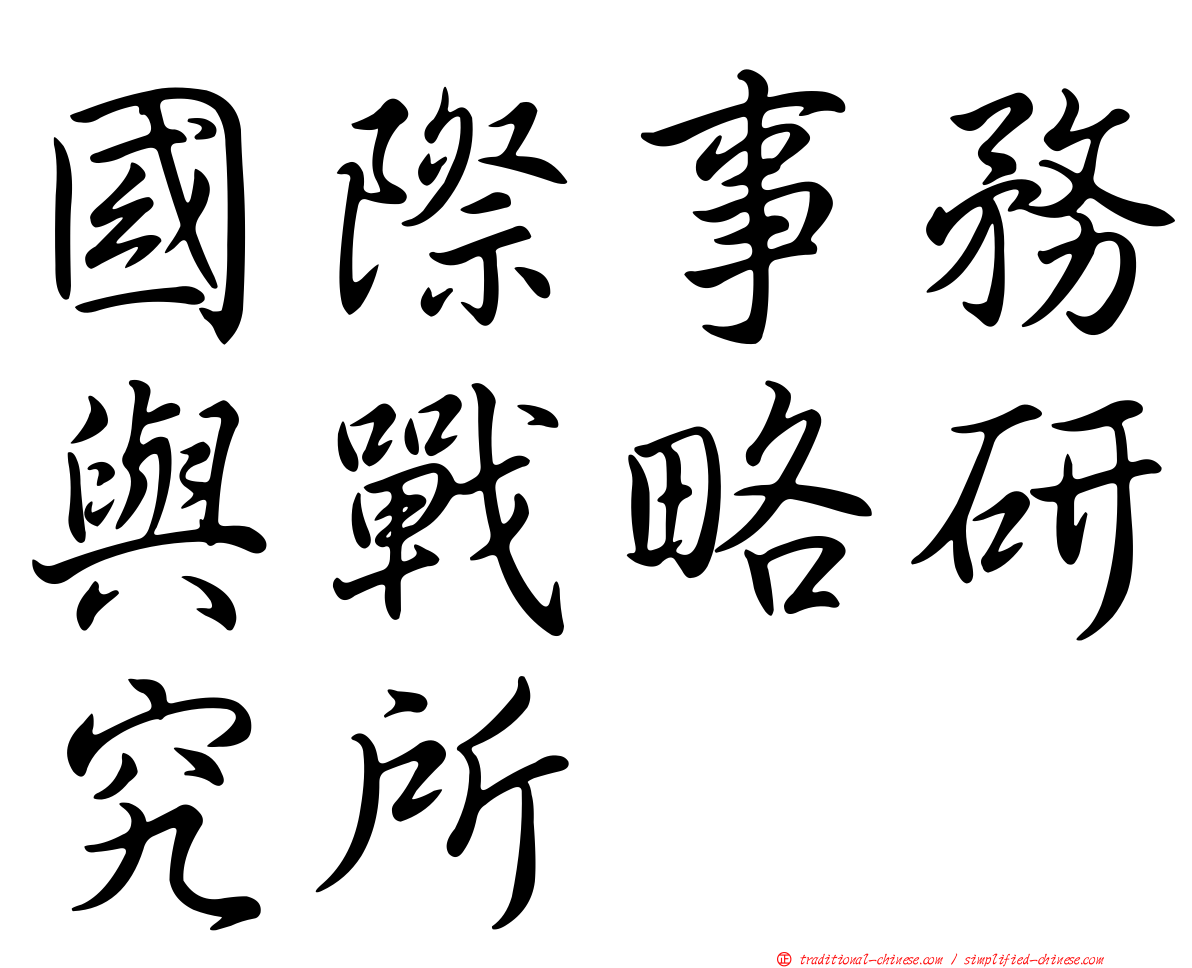 國際事務
與戰略研
究所
正 traditional-chinese.com / simplified-chinese.com